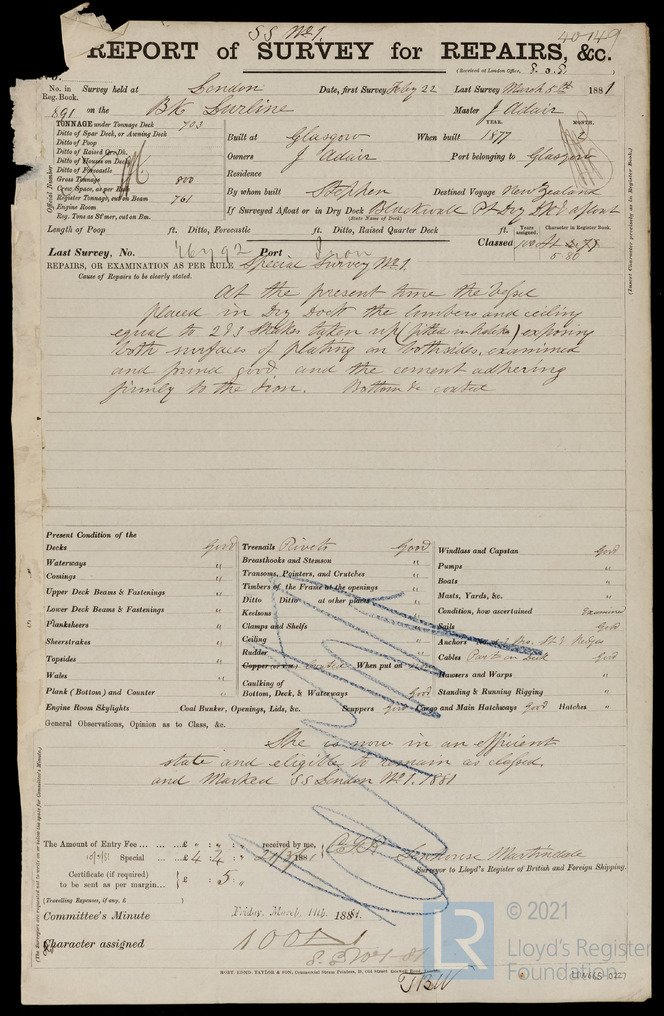 SS No 1.
40149
REPORT of SURVEY for REPAIRS, &c.
(Received at London Office,
No. in Reg. Book. Survey held at London Date, first Survey Feby 22 Last Survey March 5th 1881
891 on the Bk Lurline Master J Adair
TONNAGE under Tonnage Deck 703
Ditto of Spar Deck, or Awning Deck
Ditto of Poop
Ditto of Raised Qr. Dk.
Ditto of Houses on Deck
Ditto of Forecastle
Gross Tonnage 800
Crew Space, as per Rule
Register Tonnage, cut on Beam 761
Engine Room
Reg. Tons as St'mer, cut on Bm.
Official Number
YEAR. MONTH.
Built at Glasgow When built 1877 2
Owners J Adair Port belonging to Glasgow
Residence
By whom built Stephen Destined Voyage New Zealand
If Surveyed Afloat or in Dry Dock Blackwall Pt Dry Dk & afloat
(State Name of Dock)
Length of Poop ft. Ditto, Forecastle ft. Ditto, Raised Quarter Deck ft.
Years assigned. Character in Register Book.
Last Survey, No. 46792 Port Iron Classed 100 A1
5.80
(Insert Character precisely as in Register Book.)
REPAIRS, OR EXAMINATION AS PER RULE Special Survey No 1.
Cause of Repairs to be clearly stated.
At the present time the vessel
placed in Dry Dock the limbers and ceiling
equal to 2 & 3 strakes taken up exposing
both surfaces of plating on both sides, examined
and found good, and the cement adhering
firmly to the Iron. Bottom &c coated
Present Condition of the
Decks Good
Waterways "
Comings "
Upper Deck Beams & Fastenings "
Lower Deck Beams & Fastenings "
Planksheers "
Sheerstrakes "
Topsides "
Wales "
Plank (Bottom) and Counter "
Treenails Rivets Good
Breasthooks and Stemson "
Transoms, Pointers, and Crutches "
Timbers of the Frame at the openings "
Ditto Ditto at other places "
Keelsons "
Clamps and Shelfs "
Ceiling "
Rudder "
Copper When put on
Caulking of Bottom, Deck, & Waterways Good
Windlass and Capstan Good
Pumps "
Boats "
Masts, Yards, &c. "
Condition, how ascertained Examined
Sails Good
Anchors No.
Cables Part on Deck Good
Hawsers and Warps "
Standing & Running Rigging "
Engine Room Skylights Coal Bunker, Openings, Lids, &c. Scuppers Good Cargo and Main Hatchways Good Hatches "
General Observations, Opinion as to Class, &c.
She is now in an efficient
state and eligible to remain as classed,
and Marked SS London No 1. 1881
(The Surveyors are requested not to write on or below the space for Committee's Minute.)
The Amount of Entry Fee £ " : " : " received by me,
Special £ 4 : 4 : " 1881
Certificate (if required) to be sent as per margin £ : 5 : "
(Travelling Expenses, if any, £ )
Senhouse Martindale
Surveyor to Lloyd's Register of British and Foreign Shipping.
Committee's Minute Friday, March 11th. 1881.
Character assigned 100 A 1
S.S. No 1-81
T.B.W
© 2021
LR
Lloyd's Register
Foundation
LDN665-0227